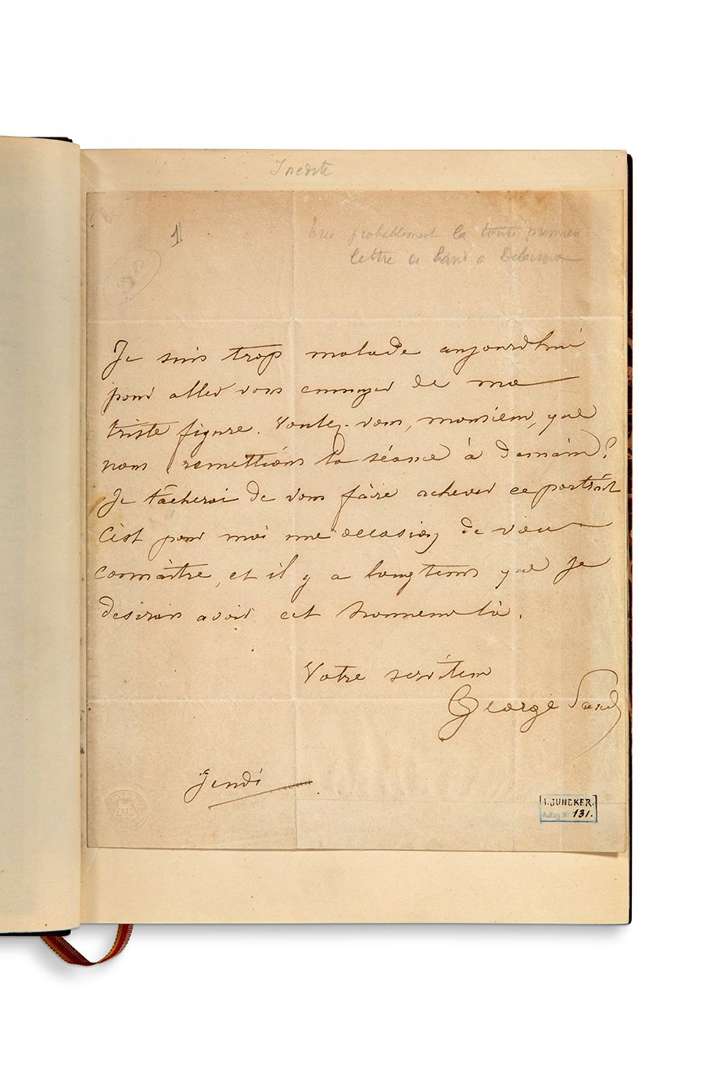 Inédite
1
Très probablement la toute première
lettre de Sand à Delacroix
Je suis trop malade aujourdhui
pour aller vous ennuyer de ma
triste figure. Voulez-vous, monsieur, que
nous remettions la séance à demain?
Je tâcherai de vous faire achever ce portrait
C'est pour moi une occasion de vous
connaître, et il y a longtems que je
désirais avoir cet honneur là.
Votre serviteur
George Sand
Jeudi
I. JUNCKER.
131.